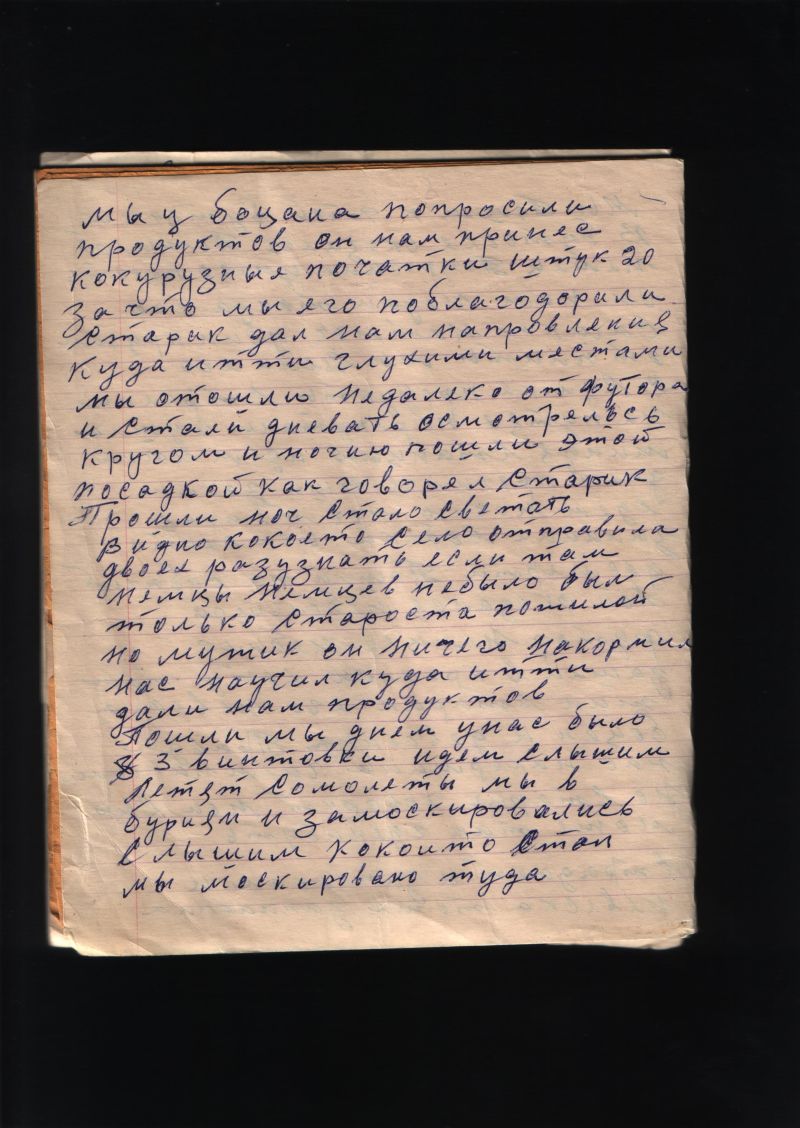 мы у боцана попросили
продуктов он нам принес
кокурузныя початки штук 20
За что мы его поблагодорили
Старик дал нам напровления
куда итти глухими местами
мы отошли недалеко от футора
и стали дневать осмотрелось
кругом и ночию пошли этой
посадкой как говорел Старик
Прошли ноч Стало Светать
видно кокоето Село отправила
двоех разузнать если там
немцы Немцев небыло был
только Староста пошилой
но мушик он ничего накормил
нас научил куда итти
дали нам продуктов
Пошли мы днем унас было
3 винтовки идем слышим
Летят Сомолеты мы в
буриян и замоскировались
Слышим кокоито Стал
мы москировано туда